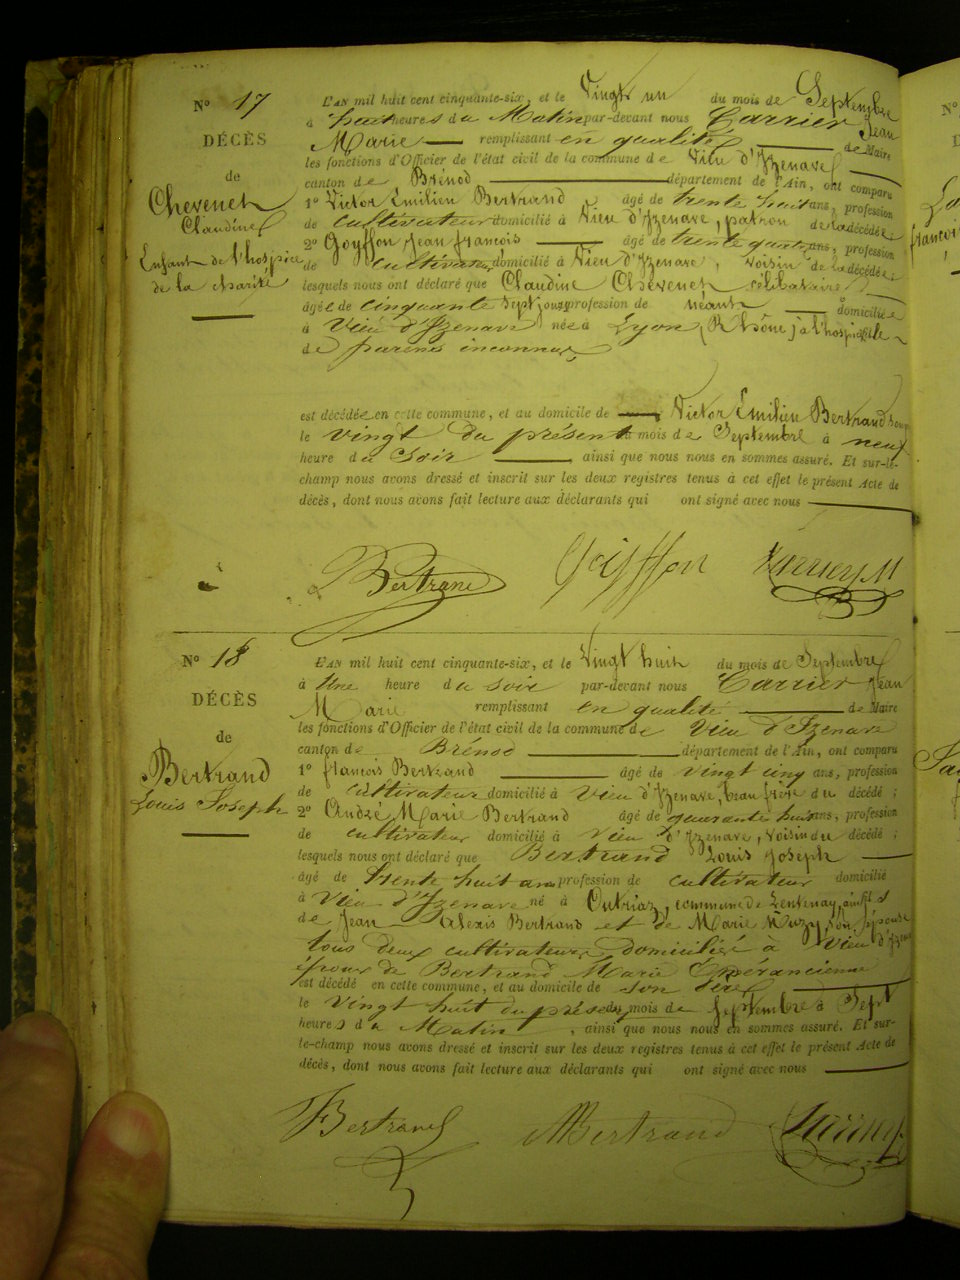 N° 17
DÉCÈS
de
Chevenet
Claudine
Enfant de l'hospice
de la charité
L'AN mil huit cent cinquante-six, et le Vingt un du mois de Septembre
à huit heures du Matin par-devant nous Carrier Jean
Marie remplissant en qualité de Maire
les fonctions d'Officier de l'état civil de la commune de Vieu d'Izenave
canton de Brénod département de l'Ain, ont comparu
1° Victor Émilien Bertrand âgé de trente huit ans, profession
de cultivateur domicilié à Vieu d'Izenave, patron de la décédée;
2° Goyffon Jean françois âgé de trente quatre ans, profession
de cultivateur domicilié à Vieu d'Izenave, Voisin de la décédée;
lesquels nous ont déclaré que Claudine Chevenet célibataire
âgée de cinquante sept profession de néant domiciliée
à Vieu d'Izenave née à Lyon (Rhône) à l'hospice fille
de parens inconnus
est décédée en cette commune, et au domicile de Victor Émilien Bertrand
le vingt du présent mois de Septembre à neuf
heure du Soir ainsi que nous nous en sommes assuré. Et sur-le-
champ nous avons dressé et inscrit sur les deux registres tenus à cet effet le présent Acte de
décès, dont nous avons fait lecture aux déclarants qui ont signé avec nous
Bertrand Goiffon Carrier JM
N° 18
DÉCÈS
de
Bertrand
Louis Joseph
L'AN mil huit cent cinquante-six, et le Vingt huit du mois de Septembre
à Une heure du soir par-devant nous Carrier Jean
Marie remplissant en qualité de Maire
les fonctions d'Officier de l'état civil de la commune de Vieu d'Izenave
canton de Brénod département de l'Ain, ont comparu
1° francois Bertrand âgé de vingt cinq ans, profession
de cultivateur domicilié à Vieu d'Izenave, beau frère du décédé;
2° André Marie Bertrand âgé de quarante huit ans, profession
de cultivateur domicilié à Vieu d'Izenave, Voisin du décédé;
lesquels nous ont déclaré que Bertrand Louis Joseph
âgé de trente huit ans profession de cultivateur domicilié
à Vieu d'Izenave né à Outriaz, commune de Lentenay, fils
de Jean Alexis Bertrand et de Marie Muzy son épouse
tous deux cultivateurs domiciliés à Vieu d'Izenave
époux de Bertrand Marie Espérancienne
est décédé en cette commune, et au domicile de son père
le vingt huit du présent du mois de Septembre à Sept
heures du Matin, ainsi que nous nous en sommes assuré. Et sur-
le-champ nous avons dressé et inscrit sur les deux registres tenus à cet effet le présent Acte de
décès, dont nous avons fait lecture aux déclarants qui ont signé avec nous
Bertrand MBertrand Carrier